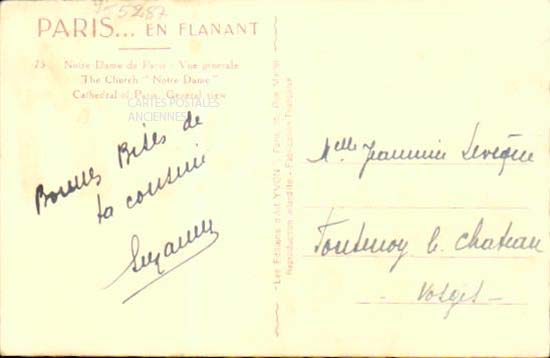 5287
PARIS... EN FLANANT
Notre Dame de Paris - Vue générale
The Church "Notre Dame"
Cathedral of Paris. General view
CARTES POSTALES
ANCIENNES
Bonnes Bises de
ta cousine
Suzanne
"Les Editions d'Art YVON", Paris, Rue
Reproduction interdite - Fabrication Française
Melle Jeannine Levêque
Fontenoy le Chateau
- Vosges -